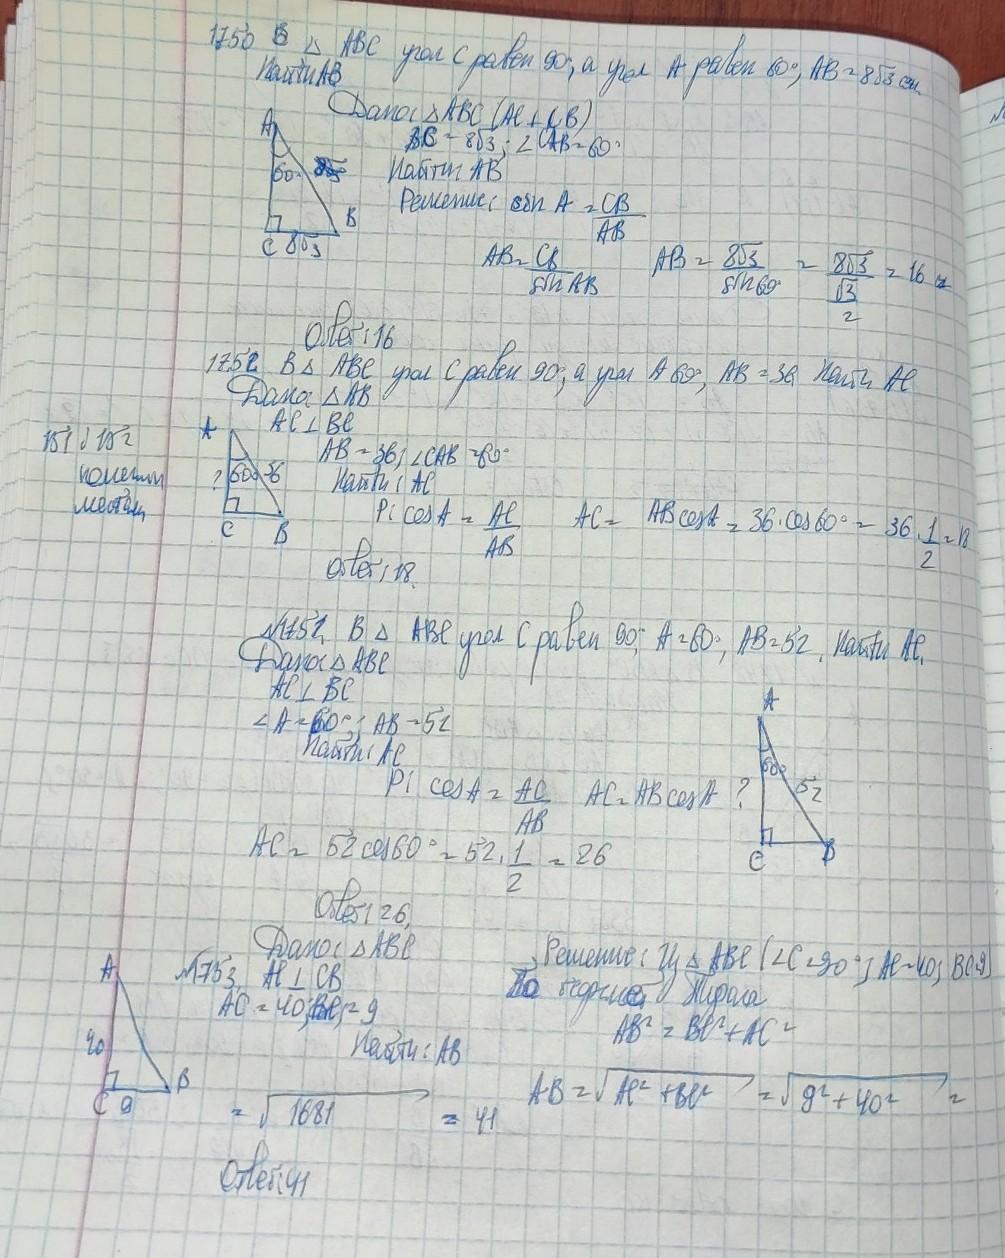 1750 В △ ABC угол C равен 90°, а угол A равен 60°, AB = 8√3 см
Найти AB
Дано: △ ABC (AC ⊥ CB)
BC = 8√3; ∠CAB = 60°
Найти: AB
Решение: sin A = CB/AB
AB = CB/sin AB AB = 8√3/sin 60° = 8√3/(√3/2) = 16
A 60° B C 8√3
Ответ: 16
1752 В △ ABC угол C равен 90°, а угол A 60°, AB = 36 Найти AC
Дано: △ AB
AC ⊥ BC
AB = 36; ∠CAB = 60°
Найти: AC
Р: cos A = AC/AB AC = AB cos A = 36 · cos 60° = 36 · 1/2 = 18
A ? 60° 36 C B
151 и 152
местам
Ответ: 18
№1751. В △ ABC угол C равен 90°, A = 60°, AB = 52. Найти AC.
Дано: △ ABC
AC ⊥ BC
∠A = 60°; AB = 52
Найти: AC
Р: cos A = AC/AB AC = AB cos A
AC = 52 cos 60° = 52 · 1/2 = 26
A 60° ? 52 C B
Ответ: 26.
№1753. Дано: △ ABC
AC ⊥ CB
AC = 40; BC = 9
Найти: AB
A 40 C 9 B
Решение: Из △ ABC (∠C = 90°; AC = 40; BC = 9)
По
AB² = BC² + AC²
AB = √AC² + BC² = √9² + 40² =
= √1681 = 41
Ответ: 41